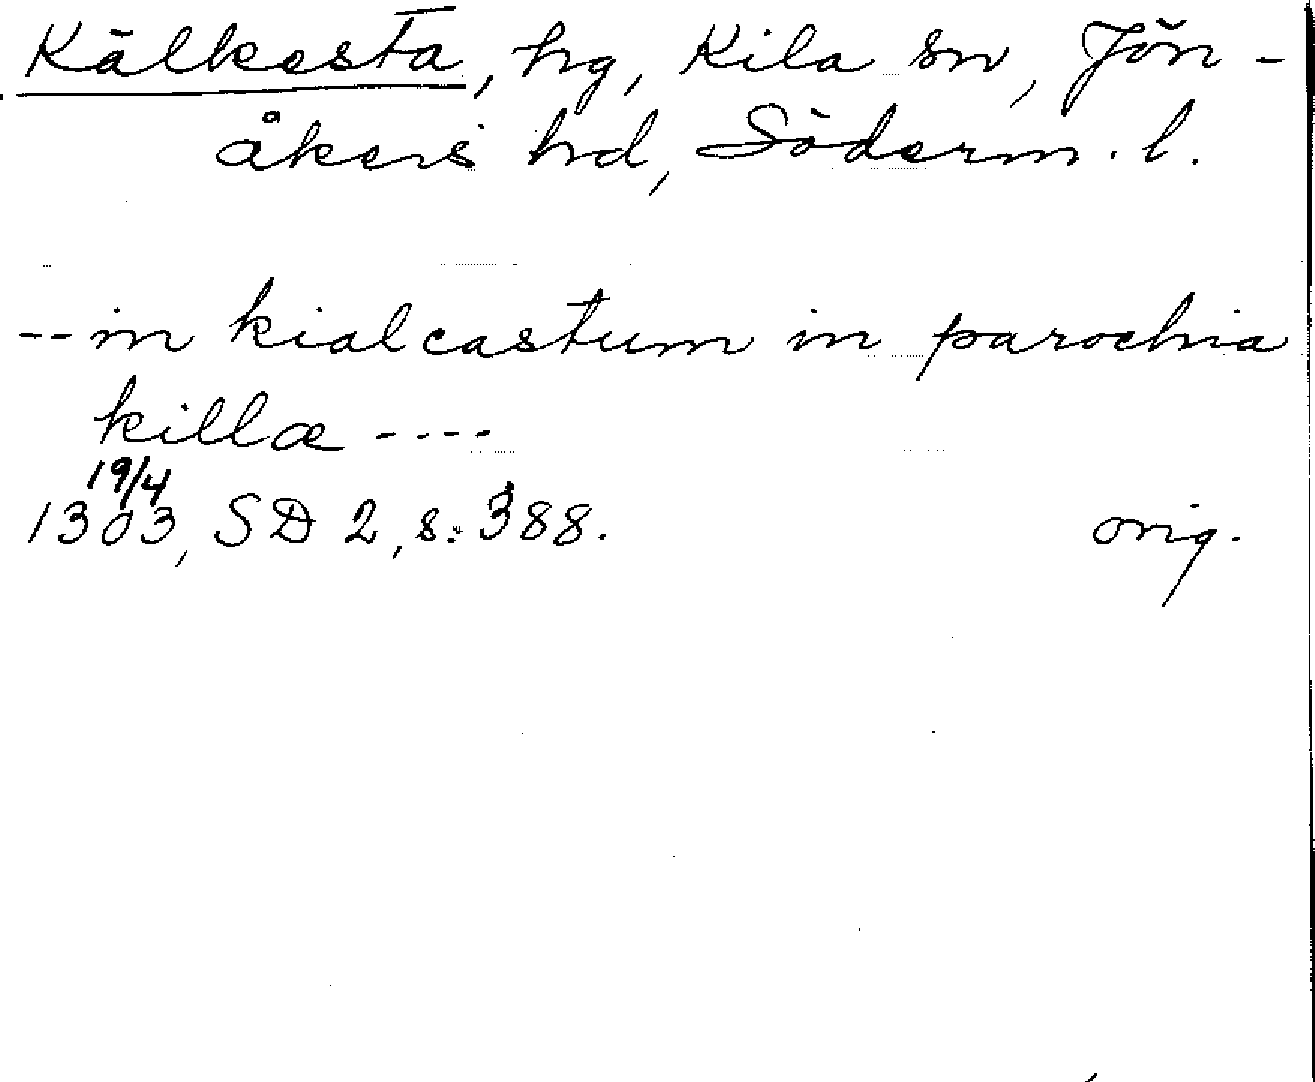 Kälkesta, hg, Kila sn, Jön-
åkers hd, Söderm. l.
--in kialcastum in parochia
killæ ----
19/4
1303, SD 2, s. 388. orig.